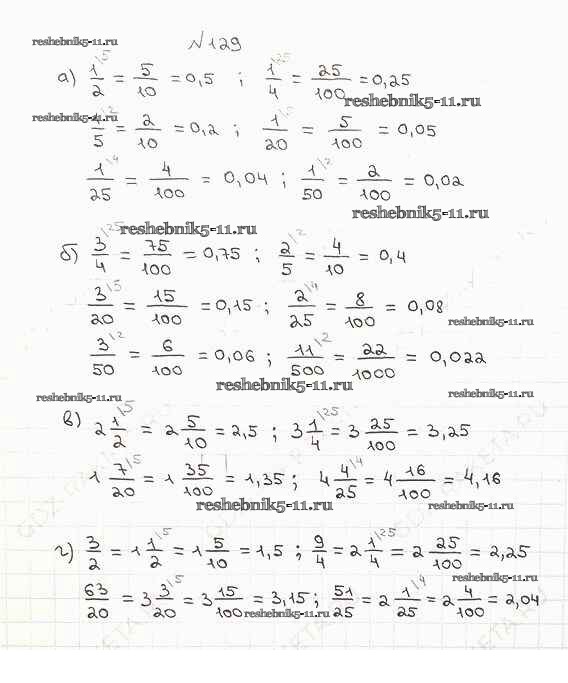 reshebnik5-11.ru
№129
а) 1/2 \5 = 5/10 = 0,5 ; 1/4 \25 = 25/100 = 0,25
reshebnik5-11.ru
reshebnik5-11.ru
1/5 \2 = 2/10 = 0,2 ; 1/20 = 5/100 = 0,05
1/25 \4 = 4/100 = 0,04 ; 1/50 \2 = 2/100 = 0,02
reshebnik5-11.ru
reshebnik5-11.ru
б) 3/4 \25 = 75/100 = 0,75 ; 2/5 \2 = 4/10 = 0,4
3/20 \5 = 15/100 = 0,15 ; 2/25 \4 = 8/100 = 0,08
reshebnik5-11.ru
3/50 \2 = 6/100 = 0,06 ; 11/500 \2 = 22/1000 = 0,022
reshebnik5-11.ru
reshebnik5-11.ru
reshebnik5-11.ru
в) 2 1/2 \5 = 2 5/10 = 2,5 ; 3 1/4 \25 = 3 25/100 = 3,25
1 7/20 \5 = 1 35/100 = 1,35 ; 4 4/25 \4 = 4 16/100 = 4,16
reshebnik5-11.ru
reshebnik5-11.ru
г) 3/2 = 1 1/2 \5 = 1 5/10 = 1,5 ; 9/4 = 2 1/4 \25 = 2 25/100 = 2,25
reshebnik5-11.ru
63/20 = 3 3/20 \5 = 3 15/100 = 3,15 ; 51/25 = 2 1/25 \4 = 2 4/100 = 2,04
reshebnik5-11.ru